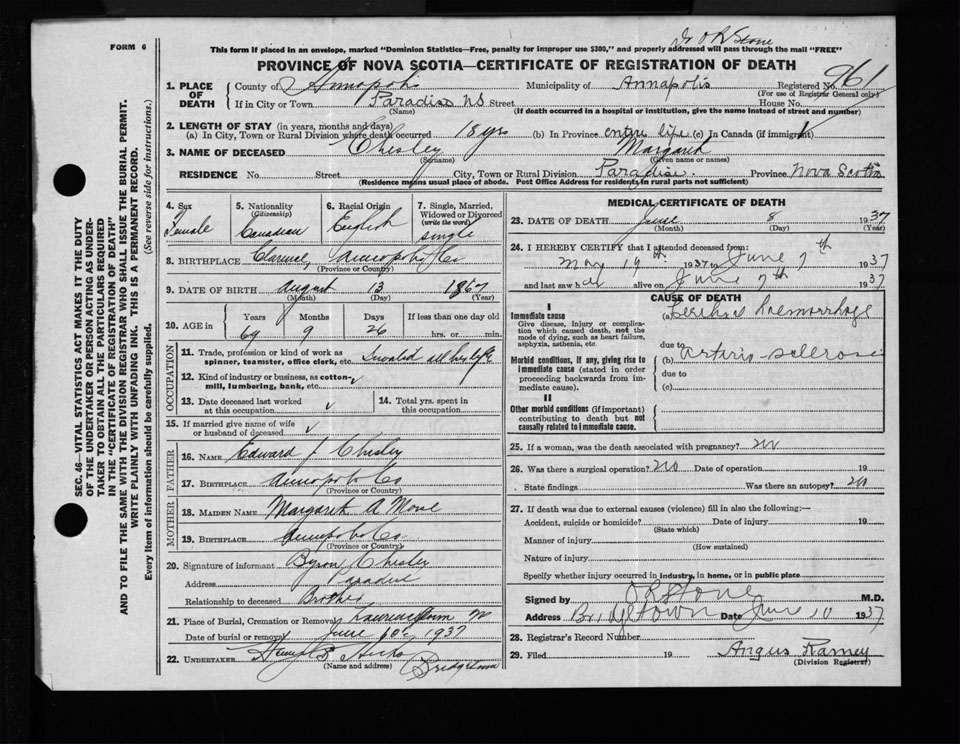 FORM 6
This form if placed in an envelope, marked "Dominion Statistics—Free, penalty for improper use $300," and properly addressed will pass through the mail "FREE"
PROVINCE OF NOVA SCOTIA—CERTIFICATE OF REGISTRATION OF DEATH
1. PLACE OF DEATH
County of Annapolis Municipality of Annapolis Registered No. 961
(For use of Registrar General only)
If in City or Town Paradise NS Street House No.
(Name) (If death occurred in a hospital or institution, give the name instead of street and number)
2. LENGTH OF STAY (in years, months and days)
(a) In City, Town or Rural Division where death occurred 18 yrs (b) In Province entire life (c) In Canada (if immigrant)
3. NAME OF DECEASED Chesley Margaret
(Surname) (Given name or names)
RESIDENCE No. Street City, Town or Rural Division Paradise. Province Nova Scotia
(Residence means usual place of abode. Post Office Address for residents in rural parts not sufficient)
4. Sex Female
5. Nationality (Citizenship) Canadian
6. Racial Origin English
7. Single, Married, Widowed or Divorced (write the word) single
8. BIRTHPLACE Annapolis Co
(Province or Country)
9. DATE OF BIRTH August 13 1867
(Month) (Day) (Year)
10. AGE in Years Months Days If less than one day old
69 9 26 hrs. or min.
OCCUPATION
11. Trade, profession or kind of work as spinner, teamster, office clerk, etc. Invalid all her life
12. Kind of industry or business, as cotton-mill, lumbering, bank, etc.
13. Date deceased last worked at this occupation
14. Total yrs. spent in this occupation
15. If married give name of wife or husband of deceased
FATHER
16. NAME Edward J Chesley
17. BIRTHPLACE Annapolis Co
(Province or Country)
MOTHER
18. MAIDEN NAME Margaret A
19. BIRTHPLACE Annapolis Co.
(Province or Country)
20. Signature of informant Byron Chesley
Address Paradise
Relationship to deceased Brother
21. Place of Burial, Cremation or Removal Lawrencetown
Date of burial or removal June 10th 1937
22. UNDERTAKER Hicks Bridgetown
(Name and address)
MEDICAL CERTIFICATE OF DEATH
23. DATE OF DEATH June 8 1937
(Month) (Day) (Year)
24. I HEREBY CERTIFY that I attended deceased from:
May 19th 1937 to June 7th 1937
and last saw her alive on June 7th 1937
CAUSE OF DEATH
I
Immediate cause
Give disease, injury or complication which caused death, not the mode of dying, such as heart failure, asphyxia, asthenia, etc.
(a) Cerebral Haemorrhage
due to
Morbid conditions, if any, giving rise to immediate cause (stated in order proceeding backwards from immediate cause).
(b) arterio-sclerosis
due to
(c)
II
Other morbid conditions (if important) contributing to death but not causally related to immediate cause.
25. If a woman, was the death associated with pregnancy? no
26. Was there a surgical operation? no Date of operation 19
State findings Was there an autopsy? no
27. If death was due to external causes (violence) fill in also the following:—
Accident, suicide or homicide? Date of injury 19
(State which)
Manner of injury
(How sustained)
Nature of injury
Specify whether injury occurred in industry, in home, or in public place
Signed by Stone M.D.
Address Bridgetown Date June 10 1937
28. Registrar's Record Number
29. Filed 19 Angus Ramey
(Division Registrar)
SEC. 46—VITAL STATISTICS ACT MAKES IT THE DUTY
OF THE UNDERTAKER OR PERSON ACTING AS UNDER-
TAKER TO OBTAIN ALL THE PARTICULARS REQUIRED
IN THE "CERTIFICATE OF REGISTRATION OF DEATH"
AND TO FILE THE SAME WITH THE DIVISION REGISTRAR WHO SHALL ISSUE THE BURIAL PERMIT.
WRITE PLAINLY WITH UNFADING INK. THIS IS A PERMANENT RECORD.
Every item of information should be carefully supplied. (See reverse side for instructions.)